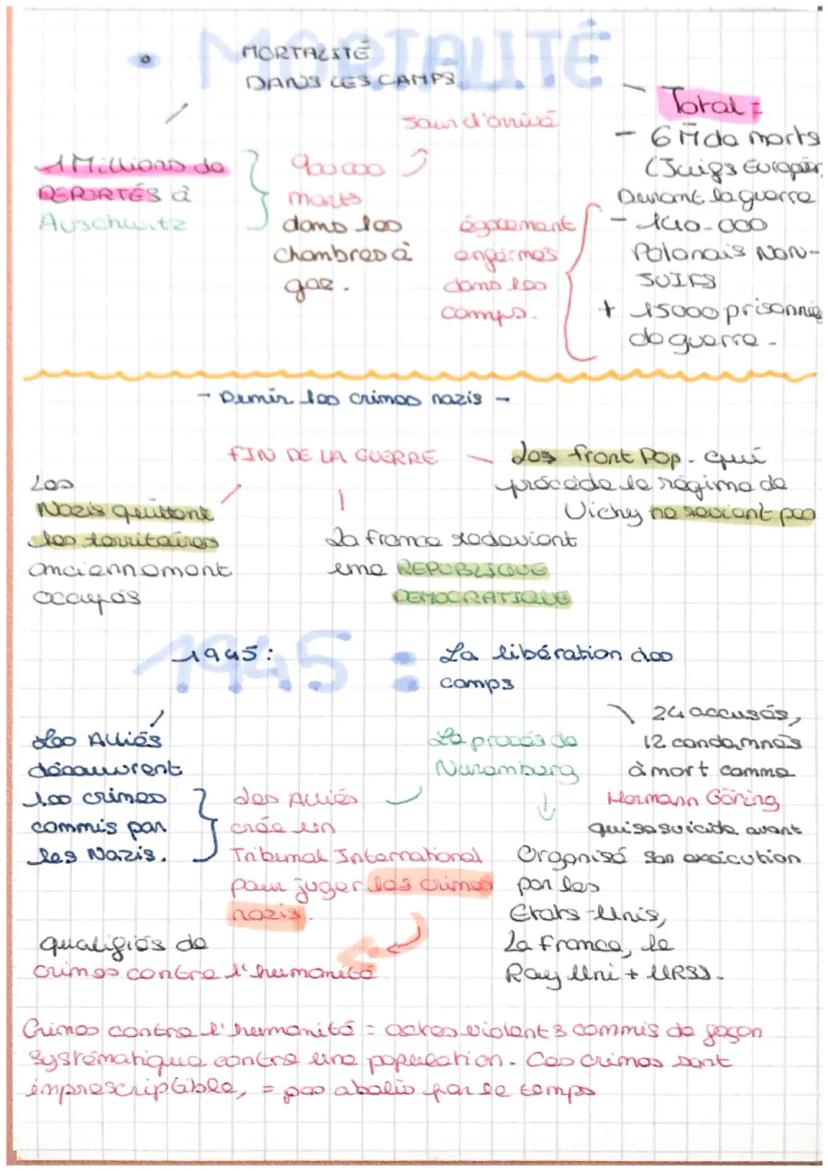 MORTALITÉ
MORTALITÉ
DANS LES CAMPS
1 Millions de
DEPORTÉS à
Auschwitz
900 000
morts
dans les
chambres à
gaz.
Jour d'arrivé
également
enfermés
dans les
camps.
Total :
- 6 M de morts
(Juifs Européen
Durant la guerre
- 140.000
Polonais NON-
JUIFS
+ 15000 prisonnie
de guerre -
- Demir les crimes nazis -
FIN DE LA GUERRE
Les
Nazis quittent
les territoires
anciennement
occupés
La france redevient
une REPUBLIQUE
DEMOCRATIQUE
Les front Pop. qui
précède le régime de
Vichy ne revient pas
1945 :
1945 :
La libération des
camps
Les Alliés
découvrent
les crimes
commis par
les Nazis.
des Alliés
crée un
Tribunal International
pour juger les crimes
nazis.
qualifiés de
crimes contre l'humanité
Le procès de
Nuremburg
Organisé
par les
Etats-Unis,
La france, le
Ray Uni + URSS.
24 accusés,
12 condamnés
à mort comme
Hermann Göring
qui se suicide avant
son exécution
Crimes contre l'humanité = actes violents commis de façon
systématique contre une population. Ces crimes sont
imprescriptible, = pas abolis par le temps